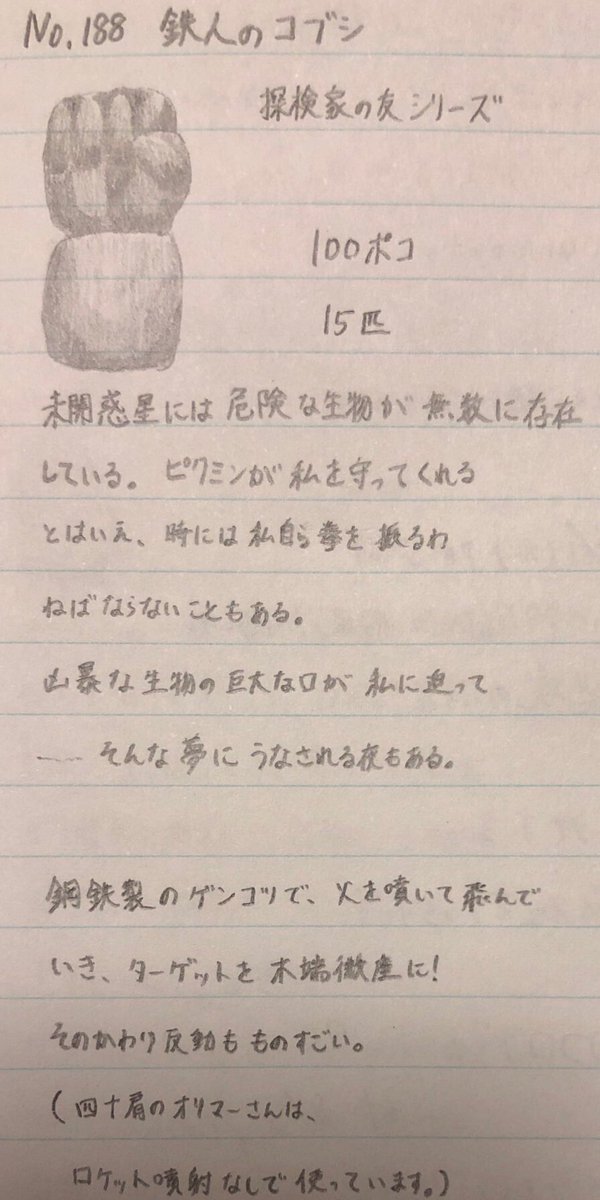 No.188 鉄人のコブシ
探検家の友シリーズ
100ポコ
15匹
未開惑星には危険な生物が無数に存在
している。ピクミンが私を守ってくれる
とはいえ、時には私自ら拳を振るわ
ねばならないこともある。
凶暴な生物の巨大な口が私に迫って
……そんな夢にうなされる夜もある。
鋼鉄製のゲンコツで、火を噴いて飛んで
いき、ターゲットを木端微塵に!
そのかわり反動もものすごい。
(四十肩のオリマーさんは、
ロケット噴射なしで使っています。)